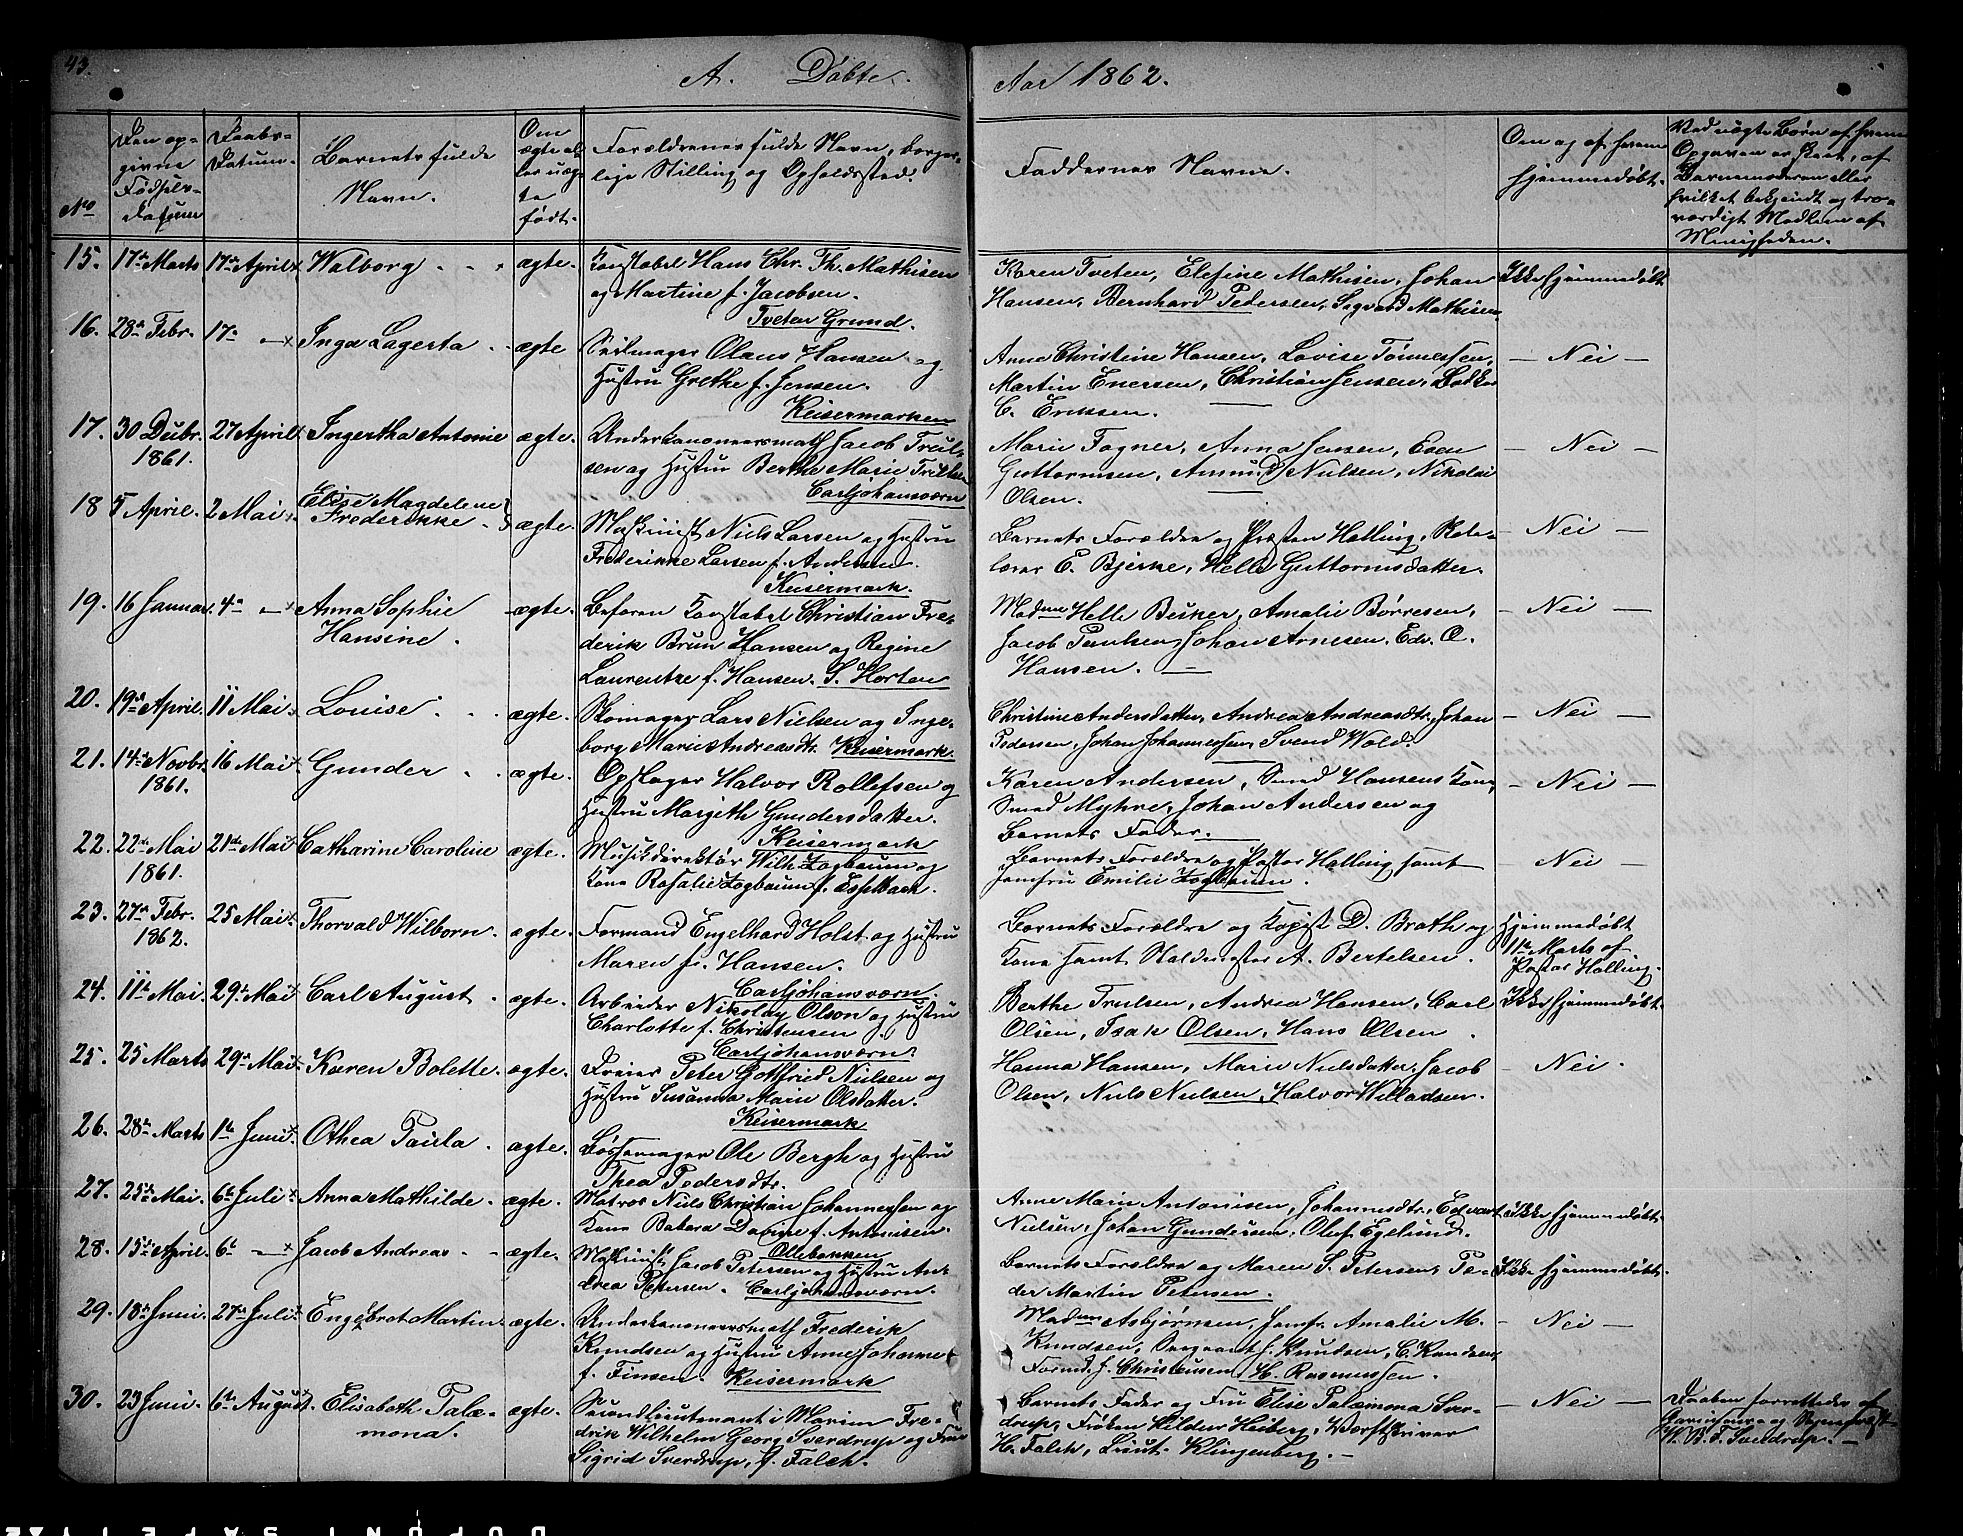 43.
A. Döbte. Aar 1862.
No
Den op-
givne
Födsels-
Datum
Daabs-
Datum.
Barnets fulde
Navn.
Om
ægte el-
ler uæg-
te
födt.
Forældrenes fulde Navn, borger-
lige Stilling og Opholdssted.
Faddernes Navne.
Om og af hvem
hjemmedøbt.
Ved uægte Börn af hvem
Opgaven er skeet, af
Barnemoderen eller
hvilket bekjendt og tro-
værdigt Medlem af
Menigheden.
15. 17de Marts 17de April Walborg ægte. Konstabel Hans Chr. Th. Mathisen
og Martine f. Jacobsen.
Tveten Grund.
Karen Tveten, Elefine Mathisen, Johan Ikke hjemmedöbt
Hansen, Bernhard Pedersen, Sigvard Mathisen
16. 28de Febr. 17de Inga Lagerta ægte Seilmager Olaus Hansen og
Hustru Grethe f. Jensen.
Keisermarken
Anne Christine Hansen, Lovise Tönnessen, — Nei —
Martin Enersen, Christian Jensen,
C. Eriksen.
17. 30 Decbr. 27 April Ingertha Antonie ægte. Underkanoneersmath Jacob Truel-
1861. sen og Hustru Berthe Marie
Carljohansværn
Marie Fagner, Anna Jensen, Even — Nei —
Guttormsen, Amund Nielsen, Nikolai
Olsen.
18 5 April. 2 Mai Elise Magdelene
Frederikke ægte. Maskinist Niels Larsen og Hustru
Frederikke Larsen f. Andersen.
Keisermark.
Barnets Forældre og Præsten Halling, Skole- — Nei —
lærer E. Bjerke, Helle Guttormsdatter.
19. 16 Januar. 4de Anna Sophie ægte. Befaren Konstabel Christian Fre-
Hansine. derik Brun Hansen og Regine
Laurentze f. Hansen. S. Horten
Madme Helle Beiker, Amalie Börresen, — Nei —
Jacob Paulsen, Johan Arnesen, Edv. O.
Hansen.
20. 19de April. 11 Mai Louise ægte. Skomager Lars Nielsen og Inge-
borg Marie Andreasdtr. Keisermark.
Christine Andersdatter, Andrea Andreasdtr, Johan — Nei —
Pedersen, Johan Johannessen, Svend Wold.
21. 14de Novbr. 16 Mai Gunder ægte. Opslager Halvor Rollefsen og
1861. Hustru Margith Gundersdatter.
Keisermark
Karen Andersen, Smed Hansens Kone, — Nei —
Smed Myhre, Johan Andersen og
Barnets Fader.
22. 22de Mai 21de Mai Catharine Caroline ægte. Musikdirektör Wilh. Zogbaum og
1861. Kone Rosalie Zogbaum f. Esselbach.
Barnets Forældre og Pastor Halling samt — Nei —
Jomfru Emilie Zogbaum.
23. 27de Febr. 25 Mai Thorvald Wilborn. ægte. Formand Engelhard Holst og Hustru
1862. Maren f. Hansen.
Carljohansværn.
Barnets Forældre og Kopist D. Brath og Hjemmedöbt
Kone samt Staldmester A. Bertelsen. 11te Marts af
Pastor Halling.
24. 11te Mai. 29de Mai Carl August ægte. Arbeider Nikolay Olson og Hustru
Charlotte f. Christensen
Carljohansværn.
Berthe Trulsen, Andrea Hansen, Carl Ikke hjemmedöbt.
Olsen, Isak Olsen, Hans Olsen.
25. 25 Marts 29de Mai Karen Bolette. ægte. Dreier Peter Gottfried Nielsen og
Hustru Susanna Marie Olsdatter.
Keisermark
Hanna Hansen, Marie Nielsdatter, Jacob — Nei.
Olsen, Niels Nielsen, Halvor Willadsen.
26. 28de Marts 1te Juni Othea Paula ægte. Bössemager Ole Bergh og Hustru
Thea Pedersdtr.
27. 25de Mai. 6te Juli Anna Mathilde. ægte. Matros Niels Christian Johannessen og
Kone Babara Davine f. Antonisen.
Ollebakken
Anne Marie Antonisen, Johannesdtr, Edvart Ikke hjemmedöbt
Nielsen, Johan Gundersen, Oluf Egelund.
28. 15de April. 6te Jacob Andreas ægte. Maskinist Jacob Petersen og Hustru An-
drea Petersen. Carljohansværn.
Barnets Forældre og Maren S. Petersen, Pe- Ikke hjemmedöbt.
der Martin Petersen.
29. 18de Juni. 27de Juli Engebret Martin ægte. Underkanoneersmath Frederik
Knudsen og Hustru Anne Johanne
f. Finsen. Keisermark
Madme Asbjörnsen, Jomfr. Amalie M. — Nei —
Knudsen, Sergeant J. Knudsen, C. Knudsen,
Formd. J. Christensen, H. Rasmussen.
30. 23 Juni. 6te August. Elisabeth Palæ- ægte. Secondlieutenant i Marinen Fre-
mona. drik Wilhelm Georg Sverdrup og Frue
Sigrid Sverdrup, f. Falch.
Barnets Fader og Fru Elise Palæmona Sver- — Nei —
drup, Fröken Hilder Heiberg, Værftskriver
H. Falch, Lieut. Klingenberg.
Daaben forrettedes af
Garnisons- og Sogneprest
Sverdrup.